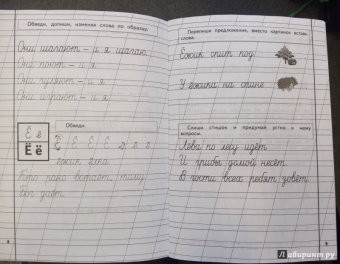 Обведи, допиши, изменяя слова по образцу.
Они шагают – и я шагаю.
Они поют – и я
Они гуляют – и я
Они играют – и я
Ё ё
Ёё
Обведи.
ёжик ёлка
Кто рано встаёт, тому
Бог даёт.
8
Перепиши предложения, вместо картинок вставь слова.
Ёжик спит под
У ёжика на спине
Спиши стишок и придумай устно к нему вопросы.
Лёва по лесу идёт
И грибы домой несёт.
В гости всех ребят зовёт.
9
Лабиринт.ру